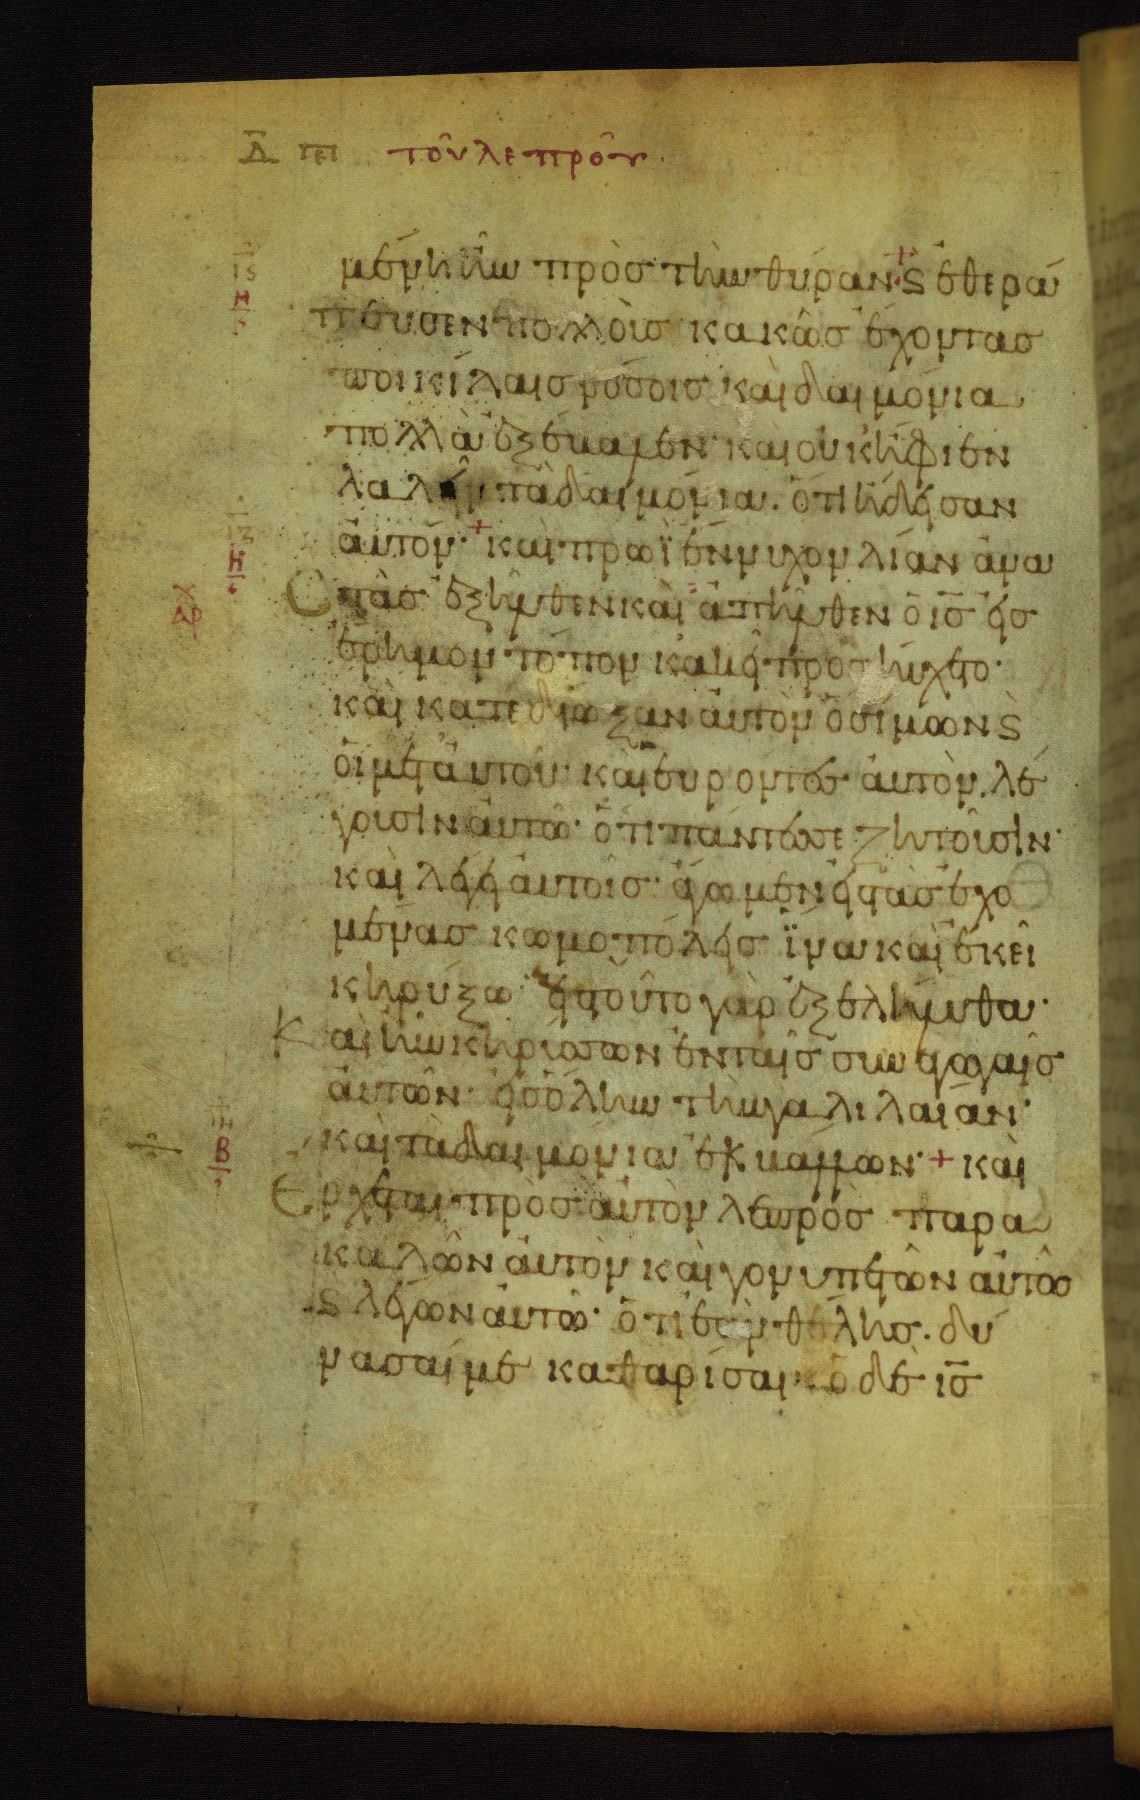 Δ πε τοῦ λεπροῦ
μένη ἦν πρὸς τὴν θύραν· ϛ ἐθερά
πευσεν πολλοὺς κακῶς ἔχοντας
ποικίλαις νόσοις καὶ δαιμόνια
πολλὰ ἐξέβαλεν· καὶ οὐκ ἤφιεν
λαλεῖν τὰ δαιμόνια. ὅτι ᾔδεισαν
αὐτόν· + καὶ πρωῒ ἔννυχον λίαν ἀνα
στὰς ἐξῆλθεν καὶ ἀπῆλθεν ὁ ις εἰς
ἔρημον τόπον κακεῖ προσηύχετο·
καὶ κατεδίωξαν αὐτὸν ὁ σίμων ϛ
οἱ μετ' αὐτοῦ· καὶ εὑρόντες αὐτὸν. λέ
γουσιν αὐτῶ· ὅτι πάντες σε ζητοῦσιν·
καὶ λέγει αὐτοῖς· ἄγωμεν εἰς τὰς ἐχο
μένας κωμοπόλεις ἵνα καὶ ἐκεῖ
κηρύξω· εἰς τοῦτο γὰρ ἐξελήλυθα·
Καὶ ἦν κηρύσσων ἐν ταῖς συναγωγαῖς
αὐτῶν εἰς ὅλην τὴν γαλιλαίαν·
καὶ τὰ δαιμόνια ἐκβάλλων· + καὶ
Ερχεται πρὸς αὐτὸν λεπρὸς παρα
καλῶν αὐτὸν καὶ γονυπετῶν αὐτὸν
ϛ λέγων αὐτῶ· ὅτι ἐὰν θέλης. δύ
νασαί με καθαρίσαι· ὁ δὲ ις